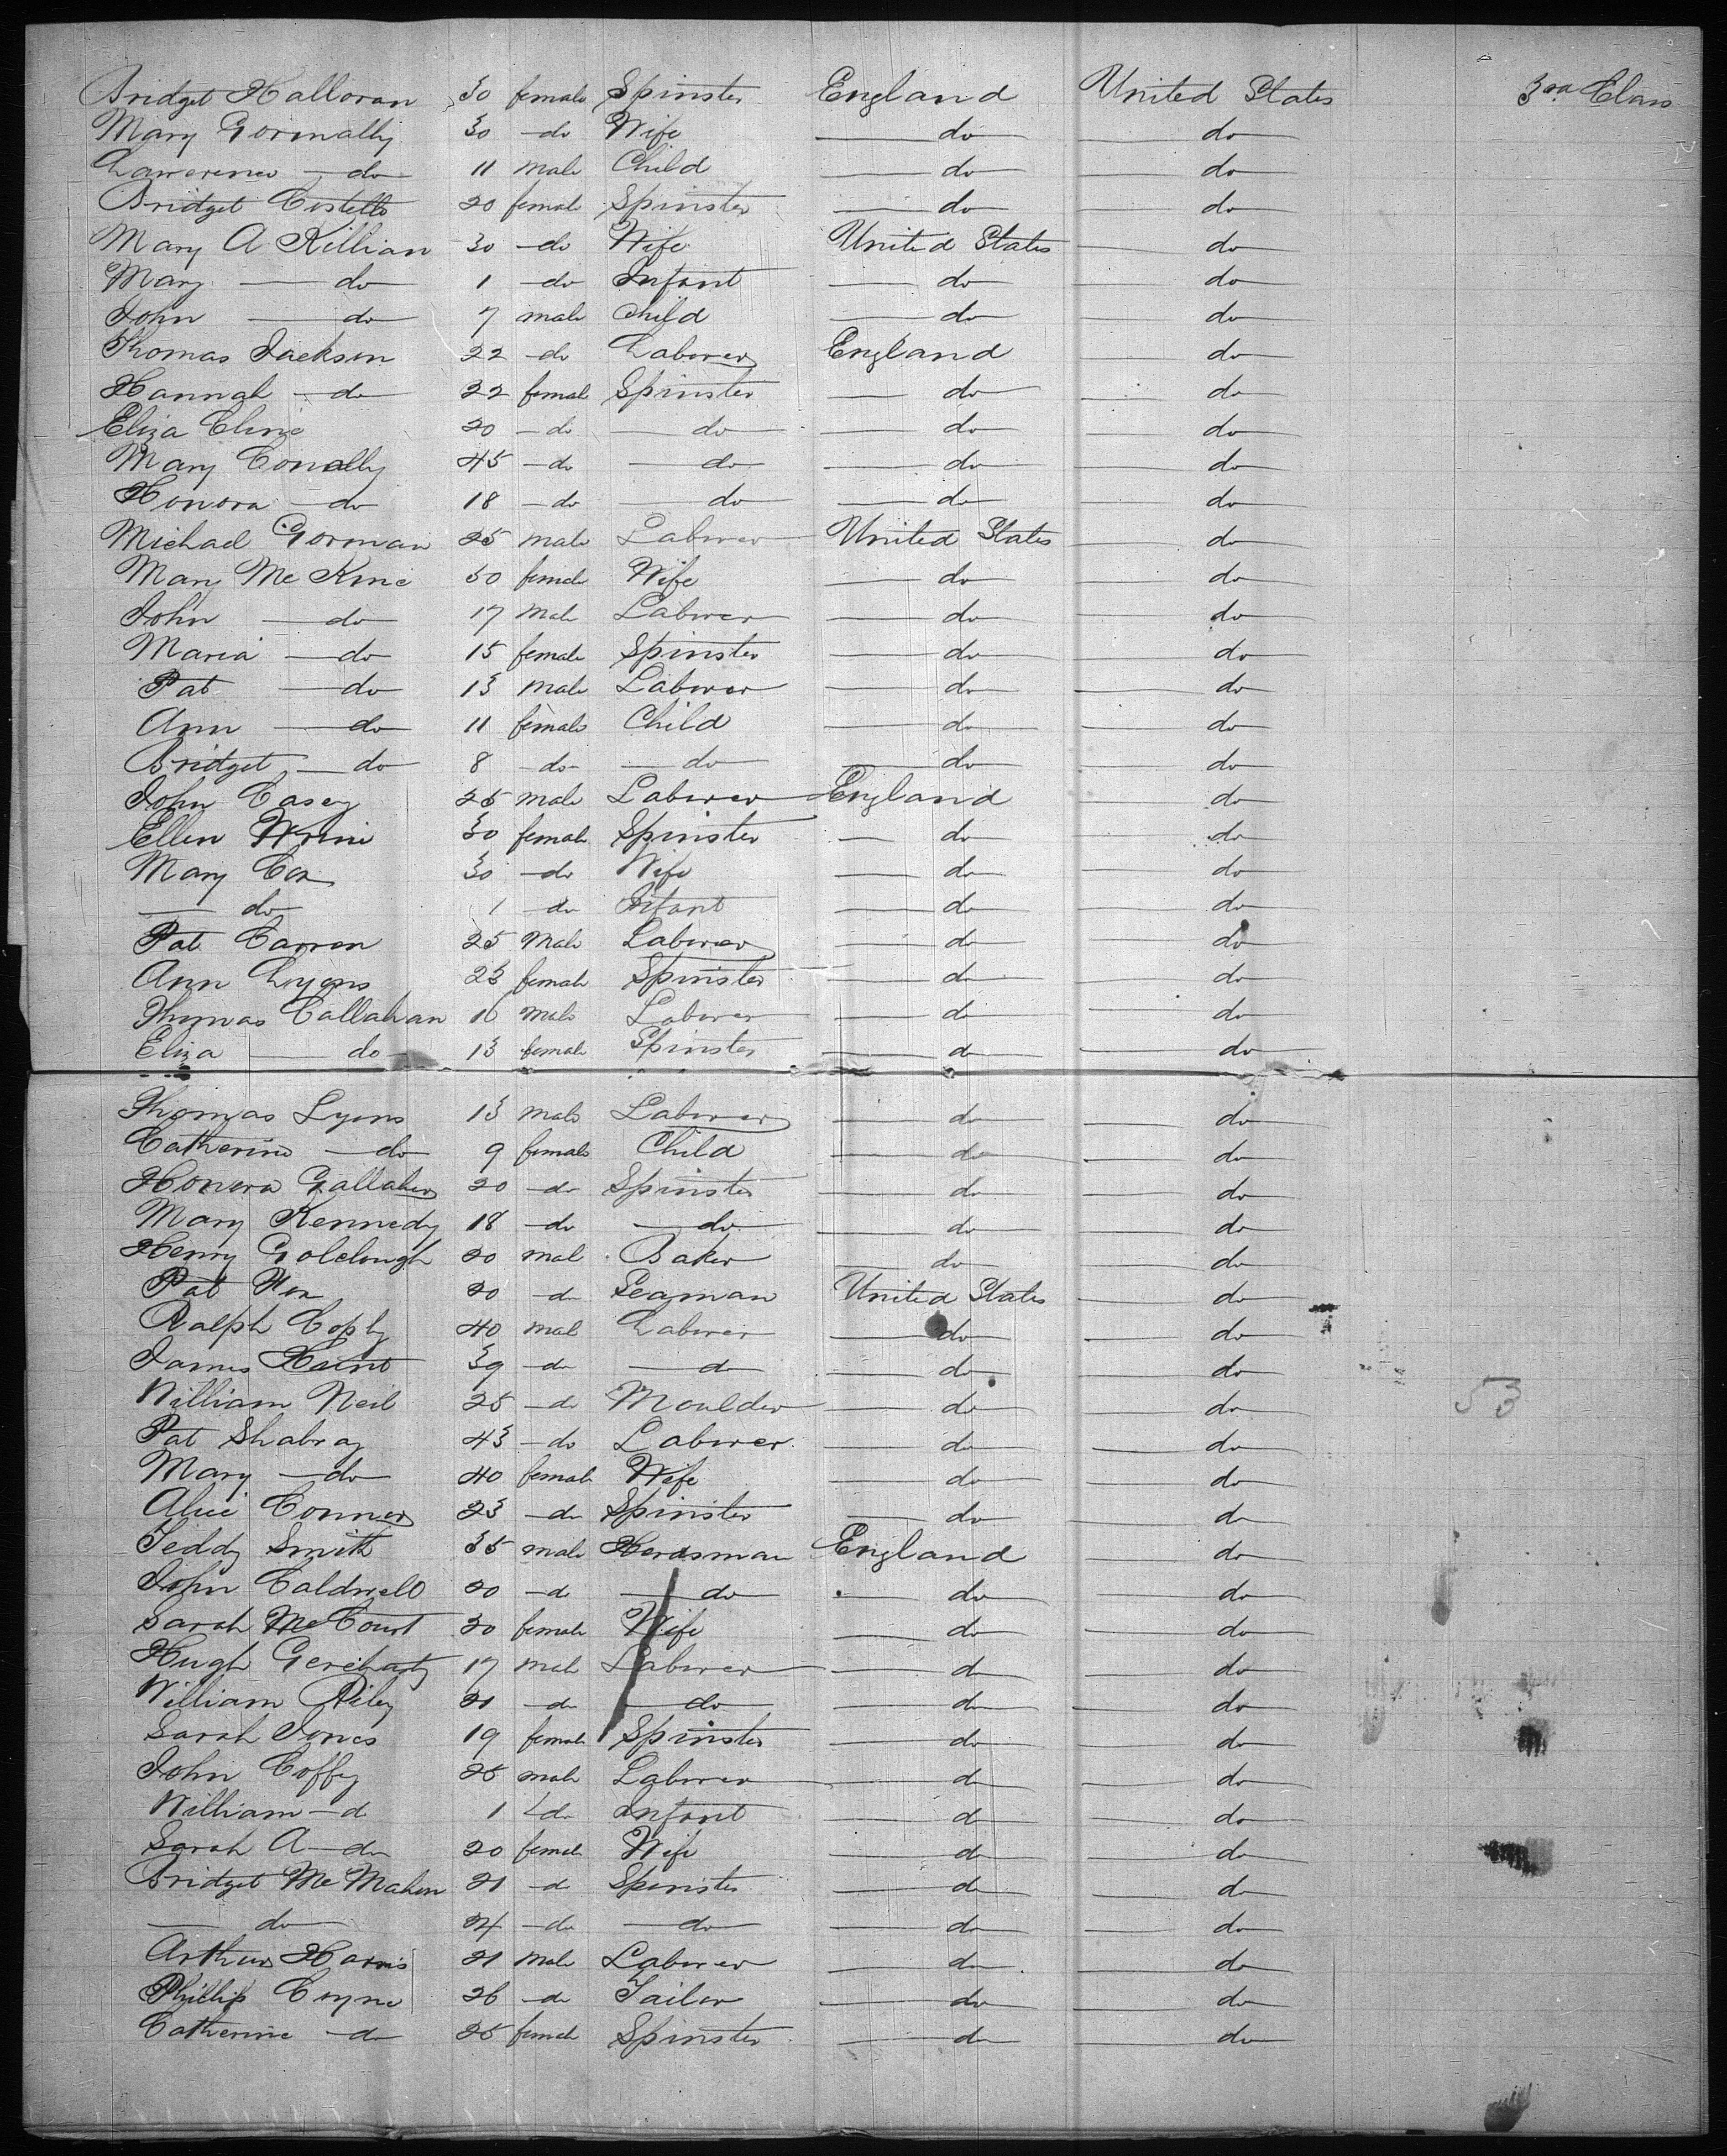 Bridget Halloran 30 female Spinster England United States 3rd Class
Mary Gormally 30 do Wife do do
Lawrence do 11 male Child do do
Bridget Costello 20 female Spinster do do
Mary A Killian 30 do Wife United States do
Mary do 1 do Infant do do
John do 7 male Child do do
Thomas Jackson 22 do Laborer England do
Hannah do 22 female Spinster do do
Eliza Cline 20 do do do do
Mary Conally 45 do do do do
Honora do 18 do do do do
Michael Gorman 25 male Laborer United States do
Mary Mc Kine 50 female Wife do do
John do 17 male Laborer do do
Maria do 15 female Spinster do do
Pat do 13 male Laborer do do
Ann do 11 female Child do do
Bridget do 8 do do do do
John Casey 25 male Laborer England do
Ellen 30 female Spinster do do
Mary Cox 30 do Wife do do
do 1 do Infant do do
Pat Carren 25 male Laborer do do
Ann Lyons 23 female Spinster do do
Thomas Callahan 16 male Laborer do do
Eliza do 13 female Spinster do do
Thomas Lyons 13 male Laborer do do
Catherine do 9 female Child do do
Honora Gallaher 20 do Spinster do do
Mary Kennedy 18 do do do do
Henry Golclough 20 male Baker do do
Pat 20 do Seaman United States do
Ralph Coply 40 male Laborer do do
James 39 do do do do
William Neil 25 do Moulder do do 53
Pat Shabray 43 do Laborer do do
Mary do 40 female Wife do do
Alice Conner 23 do Spinster do do
Teddy Smith 35 male Herdsman England do
John Caldwell 20 do do do do
Sarah Mc Court 30 female Wife do do
Hugh 17 male Laborer do do
William Riley 21 do do do do
Sarah Jones 19 female Spinster do do
John Coffey 25 male Laborer do do
William do 1 do Infant do do
Sarah A do 20 female Wife do do
Bridget Mc Mahon 21 do Spinster do do
do 24 do do do do
Arthur Harris 21 male Laborer do do
Phillip Coyne 26 do Tailor do do
Catherine do 25 female Spinster do do